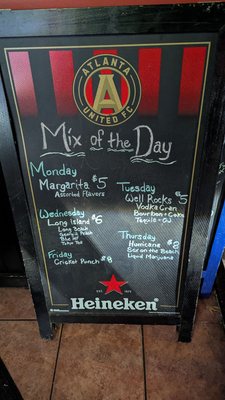 ATLANTA
UNITED FC
A
Mix of the Day
Monday
Margarita $5
Assorted Flavors
Tuesday
Well Rocks $5
Vodka Cran
Bourbon + Coke
Tequila + OJ
Wednesday
Long Island $6
Long Beach
Georgia Peach
Tokyo Tea
Thursday
Hurricane $8
Sex on the Beach
Liquid Marijuana
Friday
Cricket Punch $8
Heineken